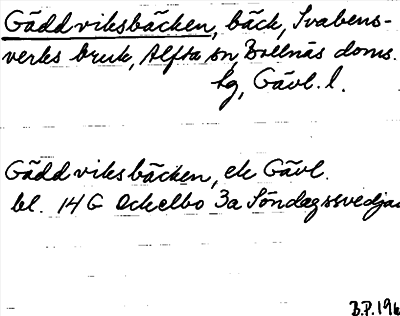 Gäddviksbäcken, bäck, Svabens-
verks bruk, Alfta sn, Bollnäs doms.
tg, Gävl. l.
Gäddviksbäcken, ek Gävl.
bl. 14 G Ockelbo 3a Söndagssvedjan
B.P. 196